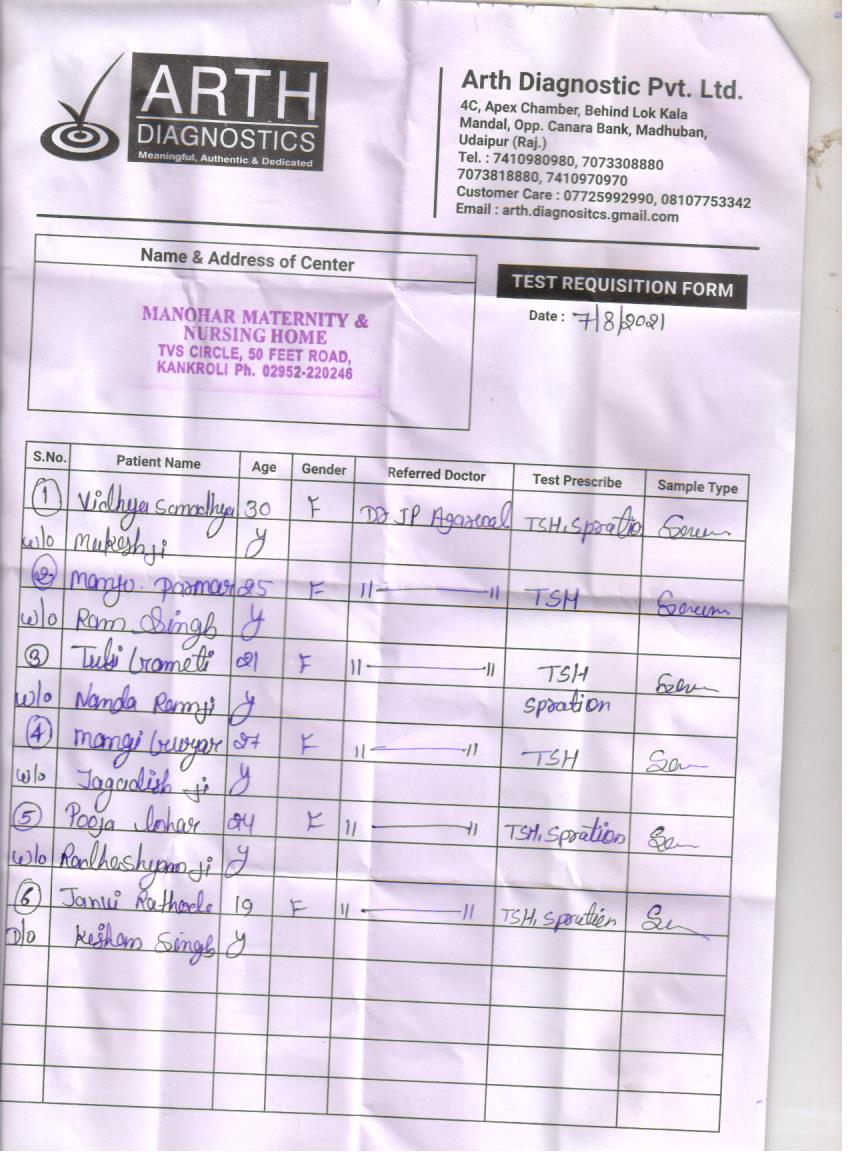 ARTH
DIAGNOSTICS
Meaningful, Authentic & Dedicated
Arth Diagnostic Pvt. Ltd.
4C, Apex Chamber, Behind Lok Kala
Mandal, Opp. Canara Bank, Madhuban,
Udaipur (Raj.)
Tel. : 7410980980, 7073308880
7073818880, 7410970970
Customer Care : 07725992990, 08107753342
Email : arth.diagnositcs.gmail.com
Name & Address of Center
MANOHAR MATERNITY &
NURSING HOME
TVS CIRCLE, 50 FEET ROAD,
KANKROLI Ph. 02952-220246
TEST REQUISITION FORM
Date : 7/8/2021
S.No. Patient Name Age Gender Referred Doctor Test Prescribe Sample Type
1 Vidhya 30 F Dr JP Agarwal TSH, Spratio Serum
w/o Mukeshji y
2 Manju Parmar 25 F 11 11 TSH Serum
w/o Ram Singh y
3 Tulsi 21 F 11 11 TSH
w/o Nanda Ramji y Spration
4 Mangi 27 F 11 11 TSH
w/o Jagadish ji y
5 Pooja lohar 24 F 11 11 TSH, Spration
w/o Radheshyam ji y
6 Janvi Rathode 19 F 11 11 TSH, Spration
D/o Singh y